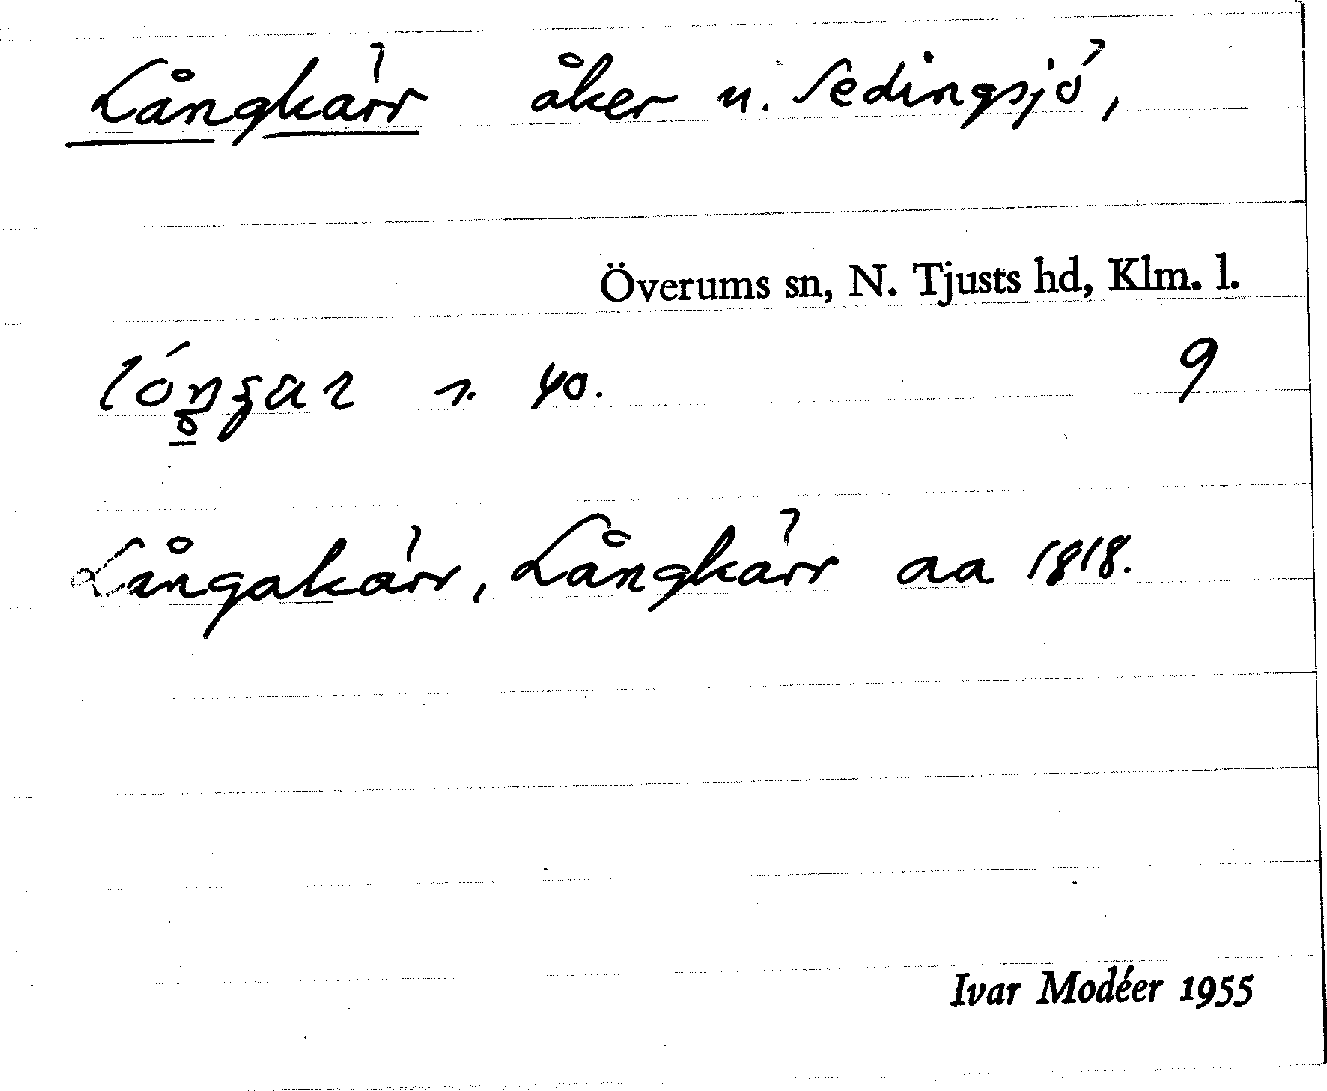 Långkärr åker u. Sedingsjö,
Överums sn, N. Tjusts hd, Klm. l.
n. 40. 9
Långakärr, Långkärr aa 1818.
Ivar Modéer 1955